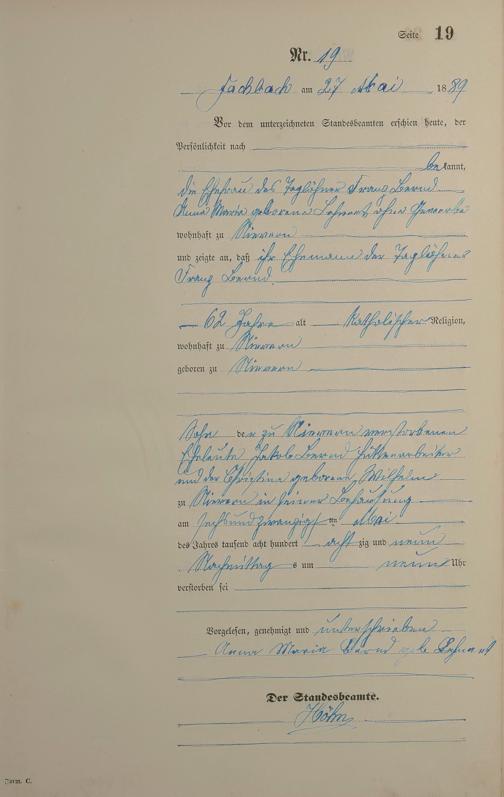 Seite 19
Nr. 19
Fachbach am 27 Mai 1889
Vor dem unterzeichneten Standesbeamten erschien heute, der
Persönlichkeit nach
bekannt,
die Ehefrau des Taglöhner Franz Bernd
Anna Maria geborene Lehnert ohne Gewerbe
wohnhaft zu Nievern
und zeigte an, daß ihr Ehemann der Taglöhner
Franz Bernd
62 Jahre alt Katholischer Religion,
wohnhaft zu Nievern
geboren zu Nievern
Sohn der zu Nievern verstorbenen
Eheleute Jakob Bernd Hüttenarbeiter
und der Christine geborene Wilhelm
zu Nievern in seiner Behausung
am sechsundzwanzigsten Mai
des Jahres tausend acht hundert achtzig und neun
Nachmittags um neun Uhr
verstorben sei
Vorgelesen, genehmigt und unterschrieben
Anna Maria Bernd geb. Lehnert
Der Standesbeamte.
Höhn
Form. C.